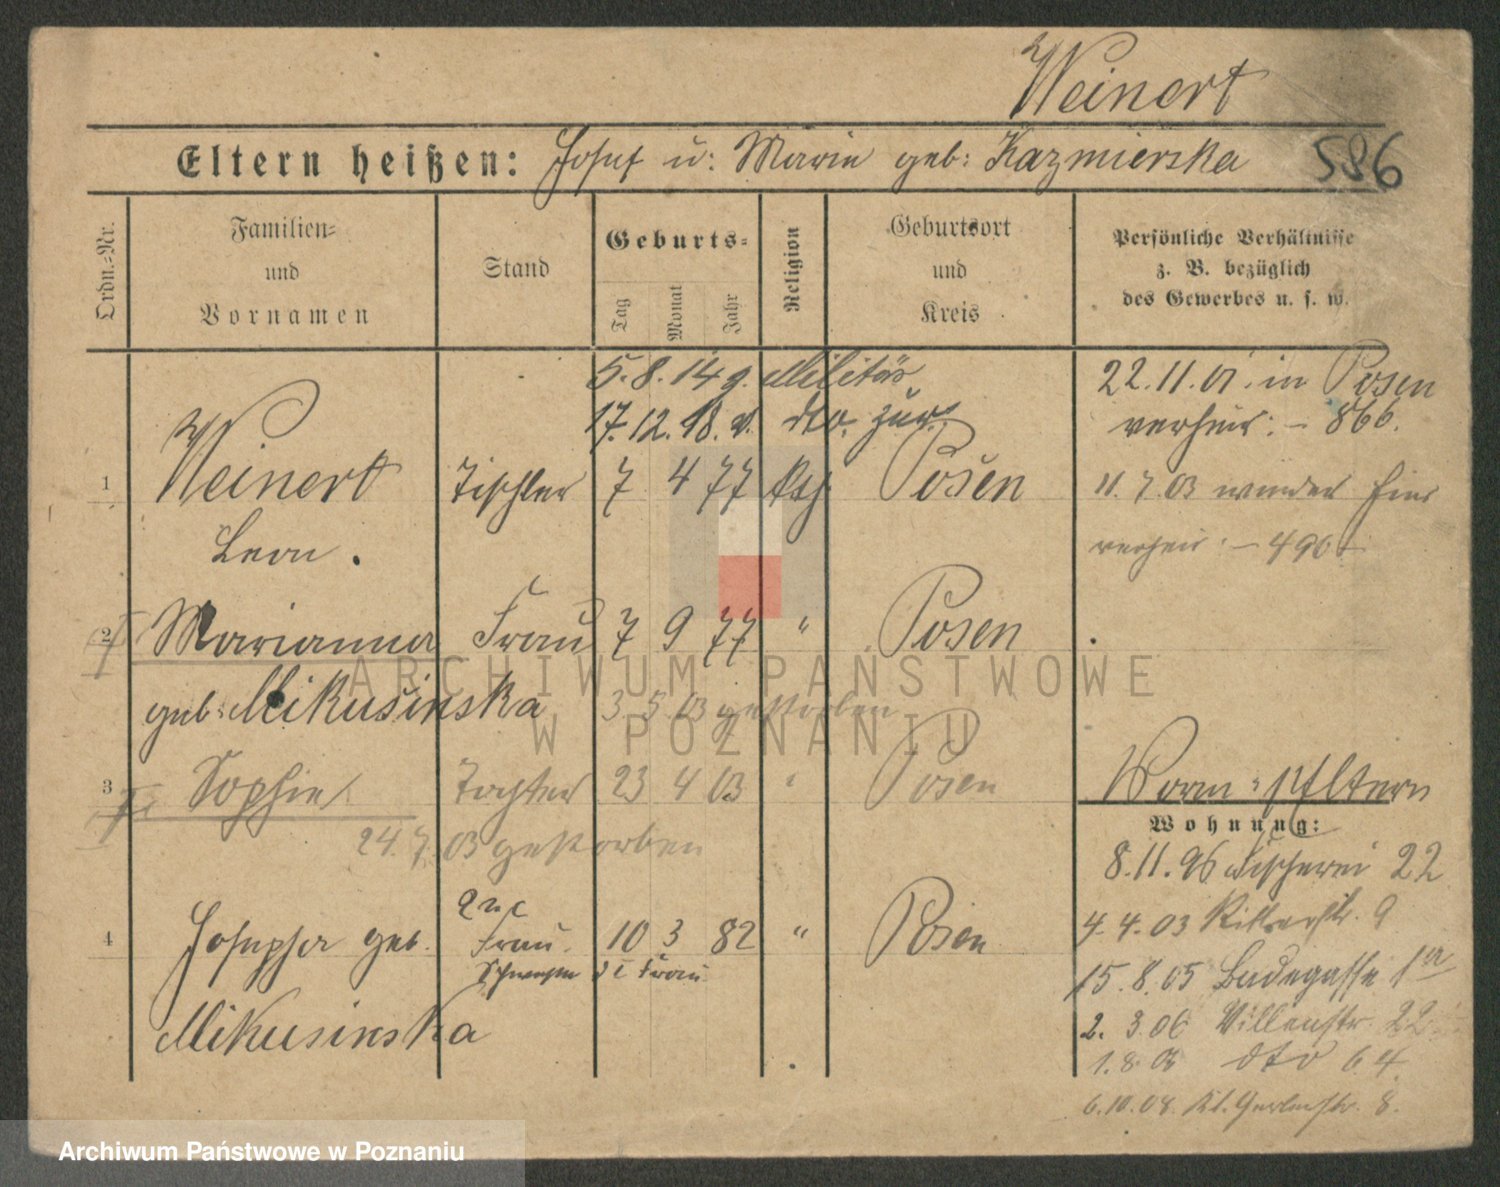 Weinert
Eltern heißen: Josef u: Marie geb: Kazmierska 586
Ordn.-Nr.
Familien-
und
Vornamen
Stand
Geburts-
Tag
Monat
Jahr
Religion
Geburtsort
und
Kreis
Persönliche Verhältnisse
z. B. bezüglich
des Gewerbes u. s. w.
5.8.14 g. Militär
17.12.18. v. dto. zür.
22.11.01. in Posen
verheir: - 866.
1 Weinert Tischler 7 4 77 kth. Posen
11.7.03 wieder hier
Leon.
verheir: - 496
2 Marianna Frau 7 9 77 " Posen
geb: Mikusinska 3 5 03 gestorben
3 Sophie Tochter 23 4 03 " Posen
24.7.03 gestorben
4 Josepha geb. 2te Frau 10 3 82 " Posen
Schwester d 1 Frau
Mikusinska
Worm: Eltern
Wohnung:
8.11.96 Fischerei 22
4.4.03 Ritterstr. 9
15.8.05 Badegasse 1a
2.3.06 Villenstr. 22
1.8.08 dto 64
6.10.08. Kl. Gerberstr. 8.
ARCHIWUM PAŃSTWOWE
W POZNANIU
Archiwum Państwowe w Poznaniu